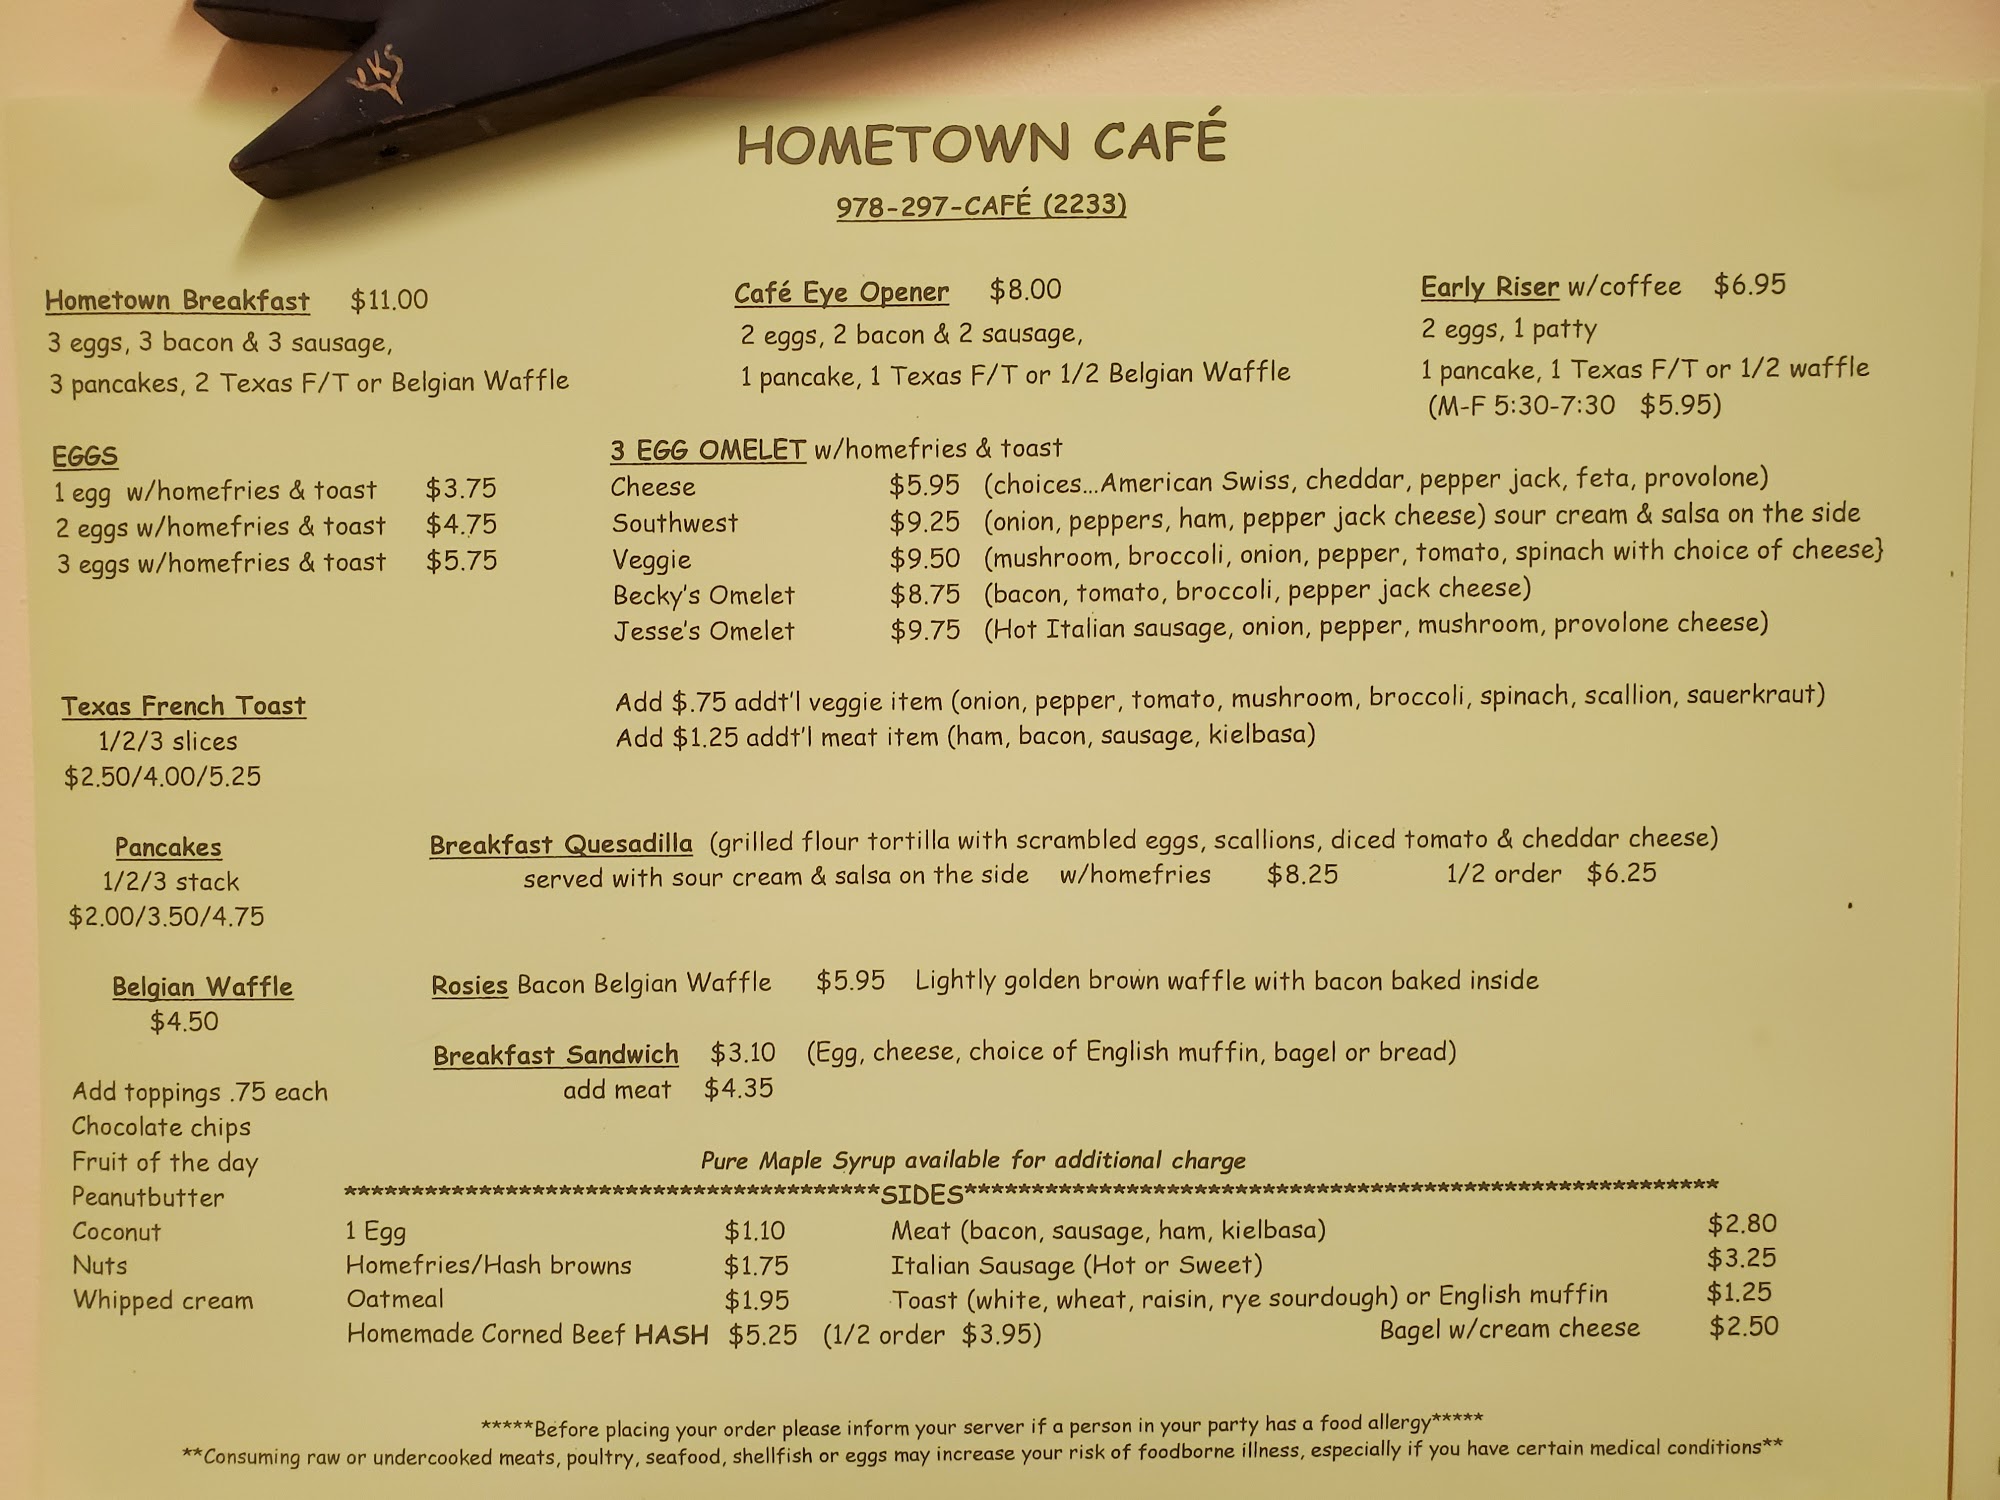 YKS
HOMETOWN CAFÉ
978-297-CAFÉ (2233)
Hometown Breakfast $11.00
3 eggs, 3 bacon & 3 sausage,
3 pancakes, 2 Texas F/T or Belgian Waffle
Café Eye Opener $8.00
2 eggs, 2 bacon & 2 sausage,
1 pancake, 1 Texas F/T or 1/2 Belgian Waffle
Early Riser w/coffee $6.95
2 eggs, 1 patty
1 pancake, 1 Texas F/T or 1/2 waffle
(M-F 5:30-7:30 $5.95)
EGGS
1 egg w/homefries & toast $3.75
2 eggs w/homefries & toast $4.75
3 eggs w/homefries & toast $5.75
3 EGG OMELET w/homefries & toast
Cheese $5.95 (choices...American Swiss, cheddar, pepper jack, feta, provolone)
Southwest $9.25 (onion, peppers, ham, pepper jack cheese) sour cream & salsa on the side
Veggie $9.50 (mushroom, broccoli, onion, pepper, tomato, spinach with choice of cheese}
Becky's Omelet $8.75 (bacon, tomato, broccoli, pepper jack cheese)
Jesse's Omelet $9.75 (Hot Italian sausage, onion, pepper, mushroom, provolone cheese)
Add $.75 addt'l veggie item (onion, pepper, tomato, mushroom, broccoli, spinach, scallion, sauerkraut)
Add $1.25 addt'l meat item (ham, bacon, sausage, kielbasa)
Texas French Toast
1/2/3 slices
$2.50/4.00/5.25
Pancakes
1/2/3 stack
$2.00/3.50/4.75
Breakfast Quesadilla (grilled flour tortilla with scrambled eggs, scallions, diced tomato & cheddar cheese)
served with sour cream & salsa on the side w/homefries $8.25 1/2 order $6.25
Belgian Waffle
$4.50
Rosies Bacon Belgian Waffle $5.95 Lightly golden brown waffle with bacon baked inside
Breakfast Sandwich $3.10 (Egg, cheese, choice of English muffin, bagel or bread)
add meat $4.35
Add toppings .75 each
Chocolate chips
Fruit of the day
Peanutbutter
Coconut
Nuts
Whipped cream
Pure Maple Syrup available for additional charge
****************************************SIDES********************************************************
1 Egg $1.10 Meat (bacon, sausage, ham, kielbasa) $2.80
Homefries/Hash browns $1.75 Italian Sausage (Hot or Sweet) $3.25
Oatmeal $1.95 Toast (white, wheat, raisin, rye sourdough) or English muffin $1.25
Homemade Corned Beef HASH $5.25 (1/2 order $3.95) Bagel w/cream cheese $2.50
*****Before placing your order please inform your server if a person in your party has a food allergy*****
**Consuming raw or undercooked meats, poultry, seafood, shellfish or eggs may increase your risk of foodborne illness, especially if you have certain medical conditions**